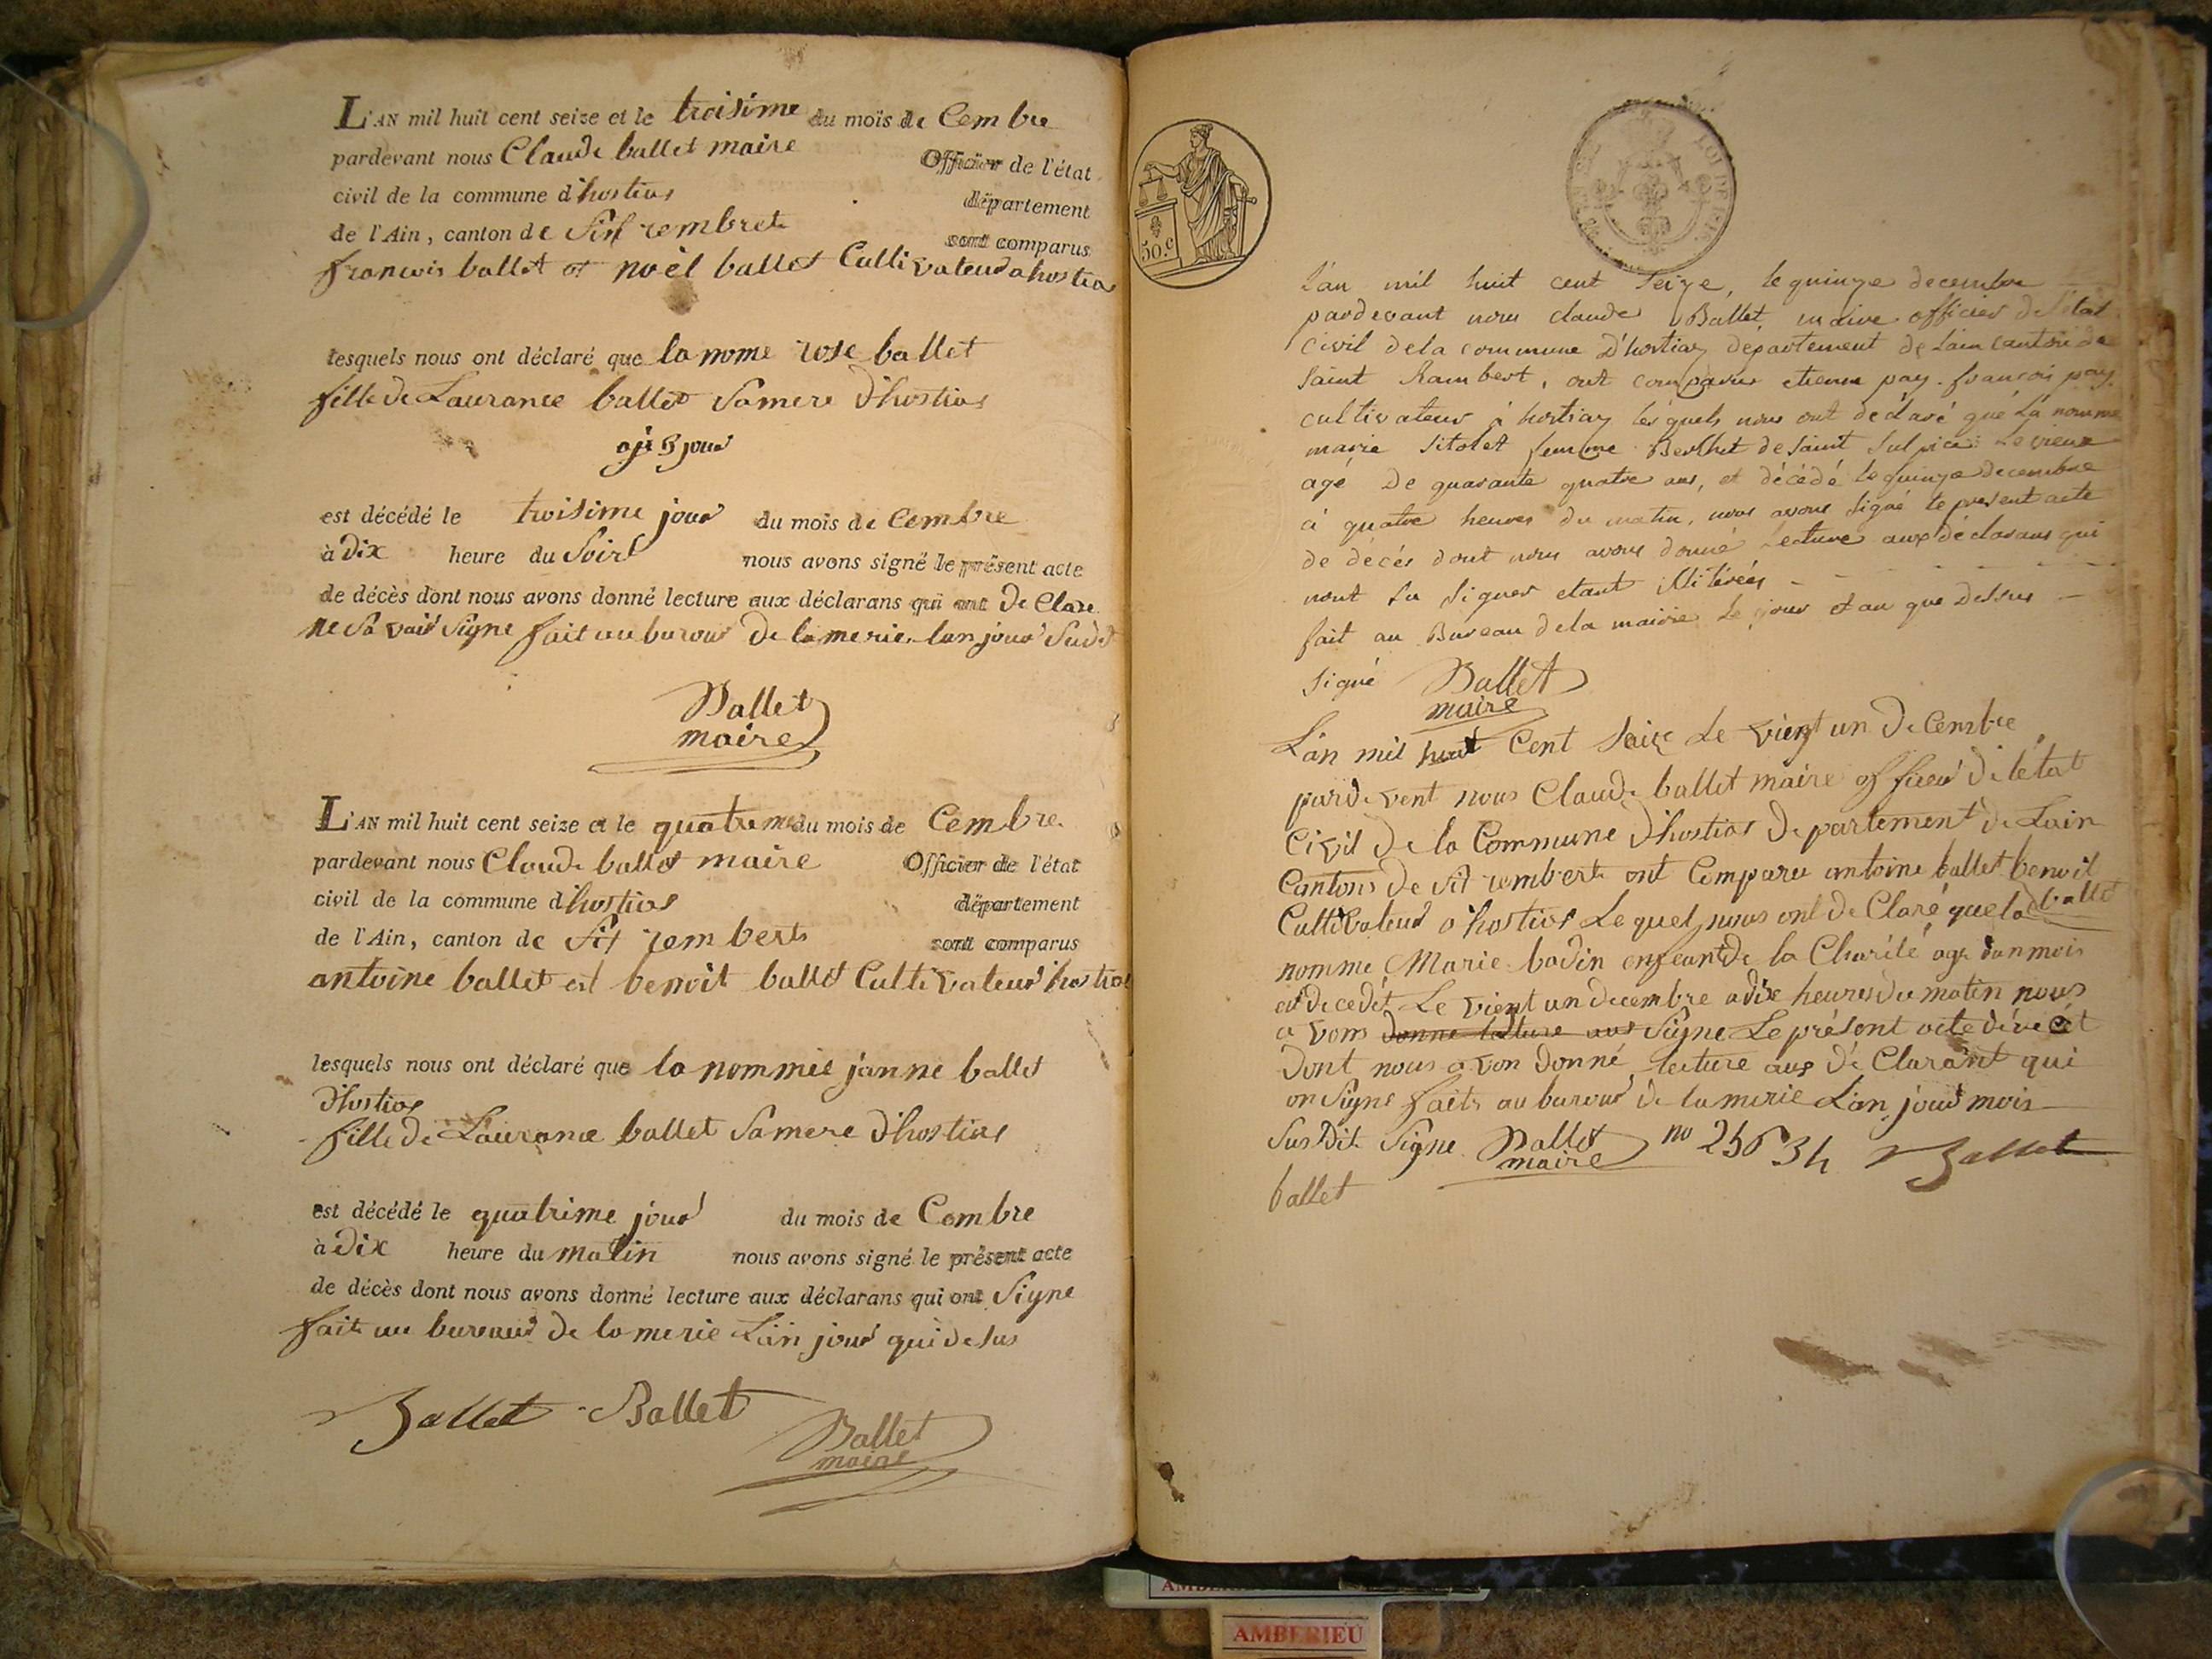 L'AN mil huit cent seize et le troisime du mois de Cembre
pardevant nous Claude ballet maire Officier de l'état
civil de la commune d'hostias département
de l'Ain, canton de St rembert sont comparus
francois ballet et noèl ballet Cultivateur a hostias
lesquels nous ont déclaré que la nome rose ballet
fille de Laurance ballet Samere d'hostias
ajé 5 jour
est décédé le troisime jour du mois de Cembre
à Dix heure du Soir nous avons signé le présent acte
de décès dont nous avons donné lecture aux déclarans qui ont De Clare
ne Sa voir Signe fait au burour de la merie lan jour Sudit
Ballet
maire
L'AN mil huit cent seize et le quatreme du mois de Cembre
pardevant nous Claude ballet maire Officier de l'état
civil de la commune d'hostias département
de l'Ain, canton de St rembert sont comparus
antoine ballet et benoit ballet Cultivateur hostias
lesquels nous ont déclaré que la nommée janne ballet
d'hostias
fille de Laurance ballet Samere d'hostias
est décédé le quatrime jour du mois de Cembre
à Dix heure du matin nous avons signé le présent acte
de décès dont nous avons donné lecture aux déclarans qui ont Signe
fait au bureaur de la merie Lan jour qui desus
Ballet Ballet
Ballet
maire
50.c
L'an mil huit cent Seize, le quinze decembre
pardevant nous claude Ballet, maire officier de l'état
civil dela commune D'hostiaz departement de Lain canton de
Saint Rambert, ont comparus etienne pay. francois pay.
cultivateur à hostiaz lesquels nous ont déclaré que La nomme
marie Sitolet femme Berthet de Saint Sulpice Le vieux
agé De quarante quatre ans, et décédé le quinze decembre
à quatre heures du matin, nous avons signé le present acte
de décés dont nous avons donné Lecture aux déclarans qui
nont Su Signer etant illiterées
fait au Bureau dela mairie Le jour et an que Dessus
signé Ballet
maire
L'an mil huit Cent Seize Le vient un De Cembre
pardevent nous Claude ballet maire officer de létat
Civil De la Commune d'hostias Departement de Lain
Cantons De St rembert ont Comparu antoine ballet benoit
Cultivateur a hostias Le quel nous ont de Claré que la ballet
nomme Marie badin enfeant de la Charité age dun mois
et decedét Le vient un decembre a dix heures du matin nous
a vons donne lecture aux Signe Le présent acte de
Dont nous a von Donné lecture aux dé Clarant qui
on Signe faits au burour de la merie L'an jour mois
SusDit Signe Ballet no 25634 Ballet
maire
ballet
AMBERIEU